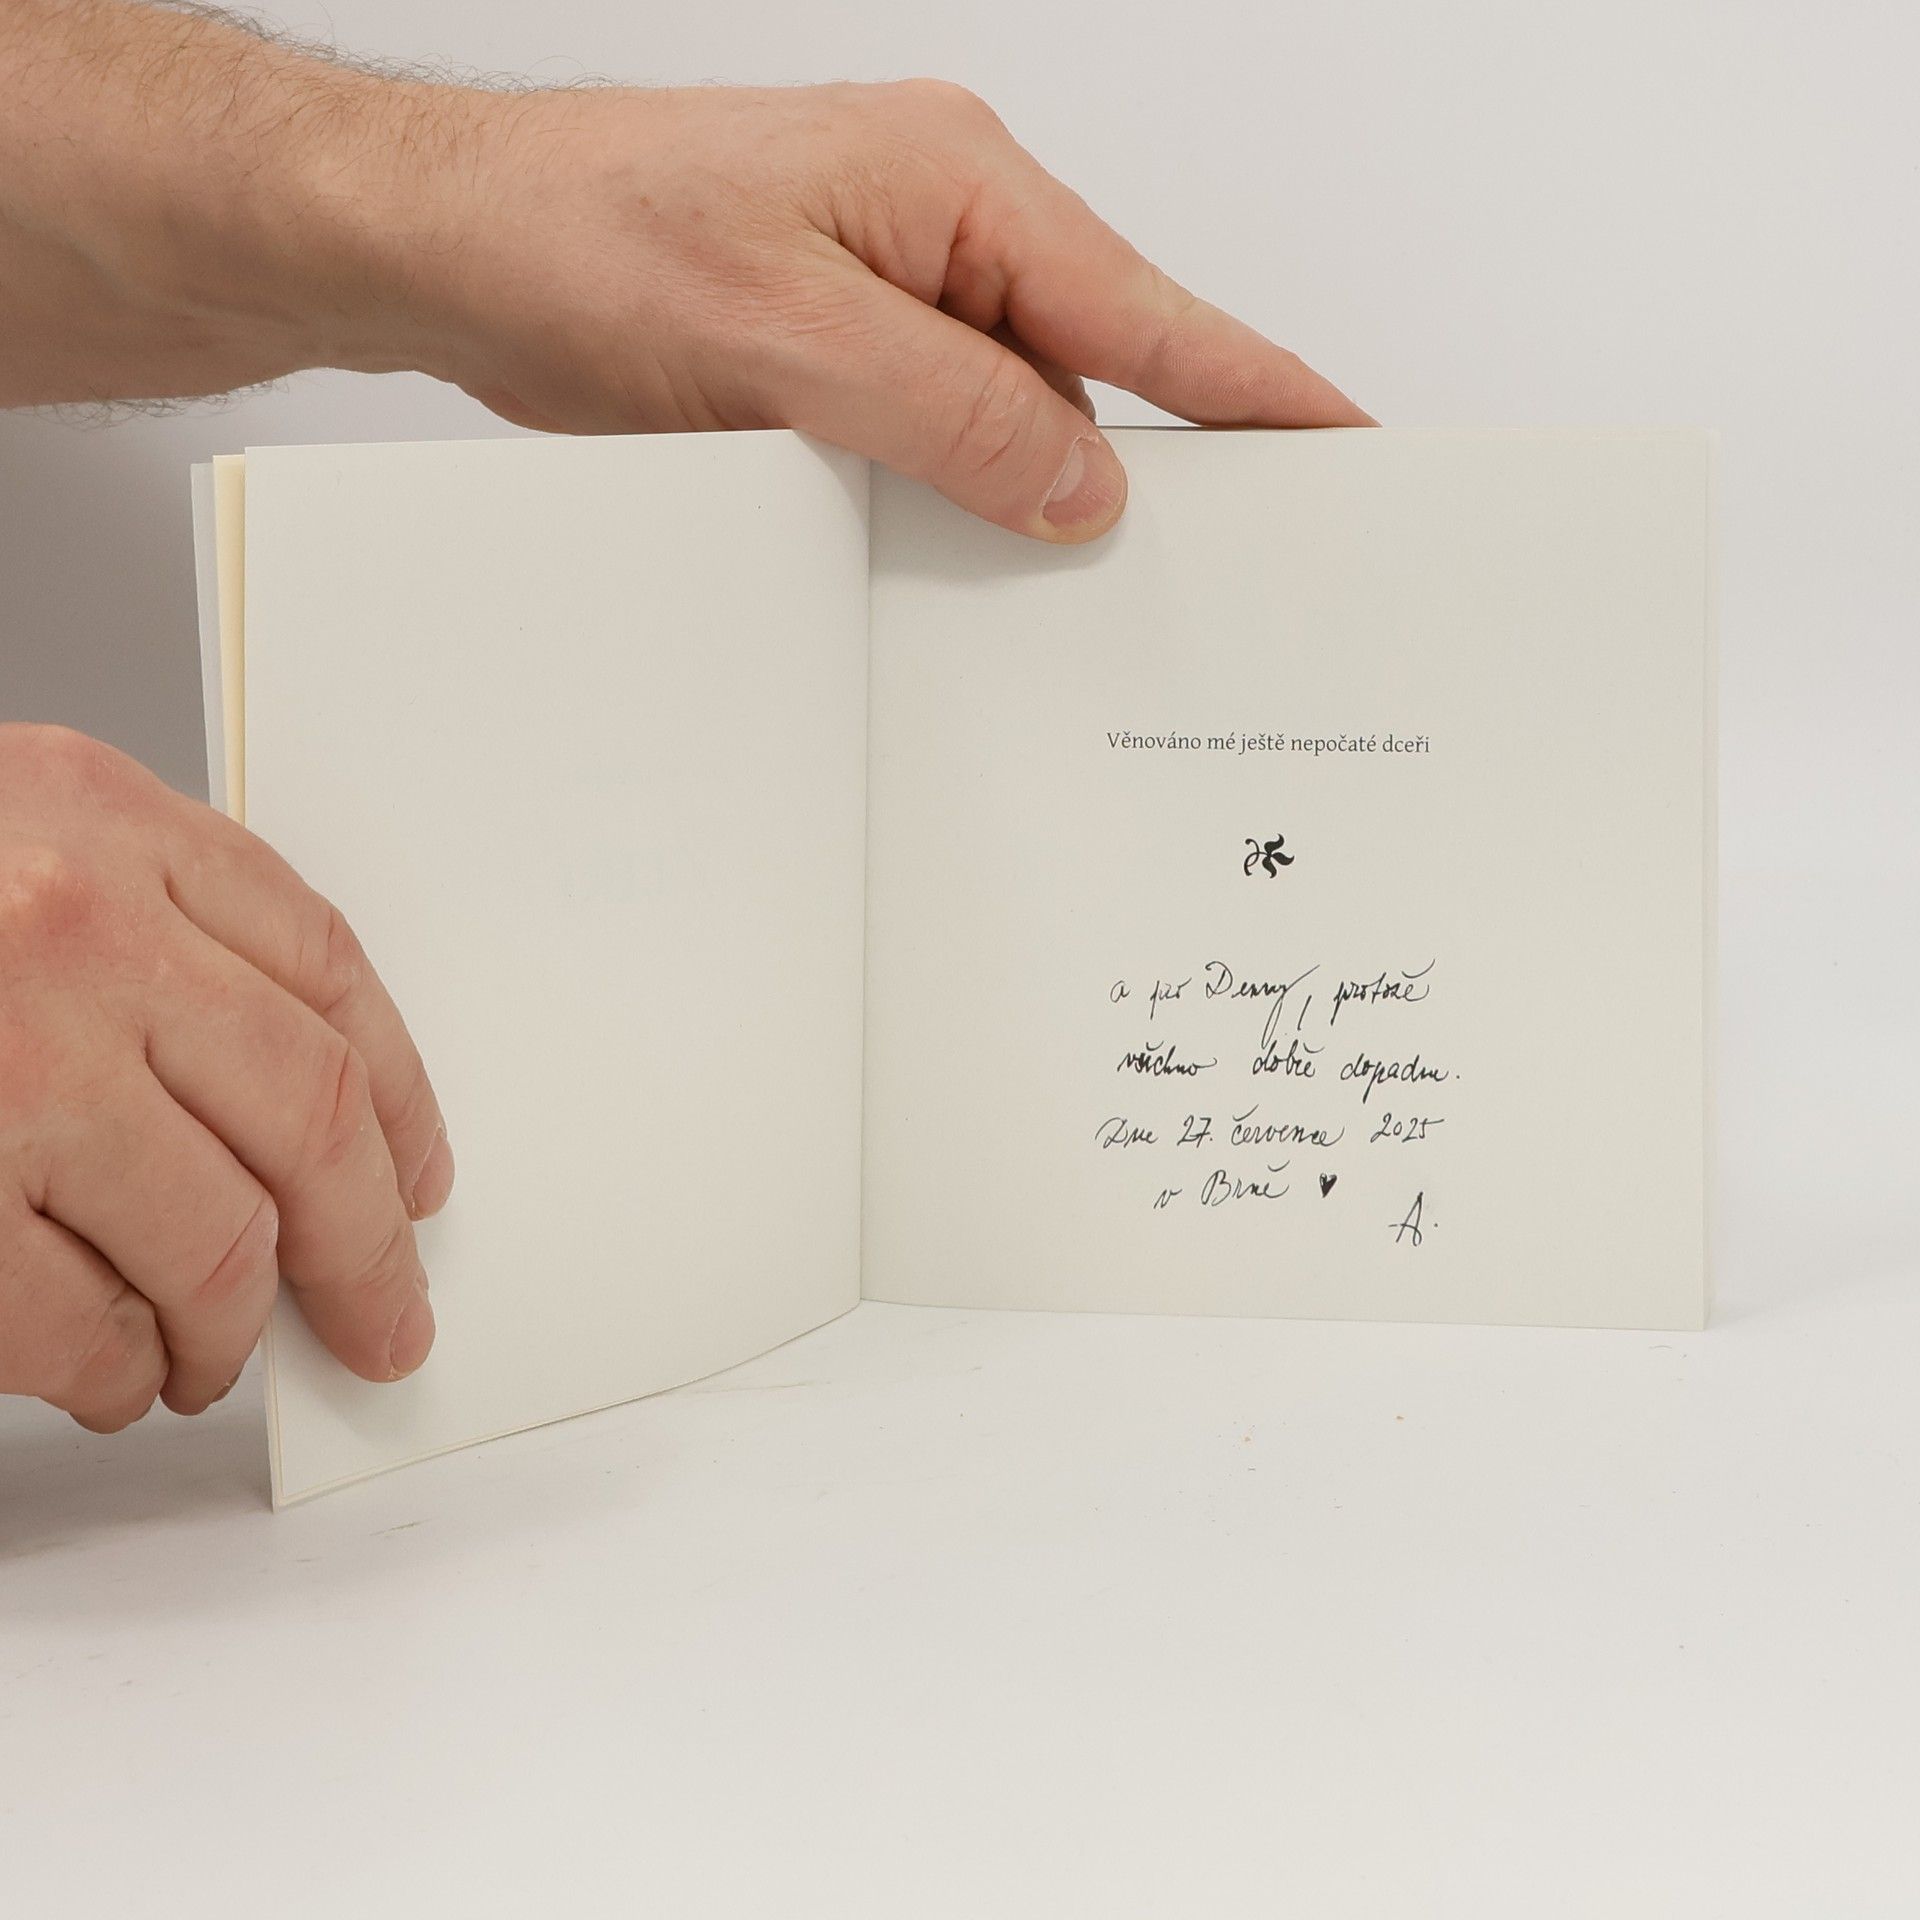 Věnováno mé ještě nepočaté dceři
a pro Denny, protože
všechno dobře dopadne.
Dne 27. července 2025
v Brně ♥
A.